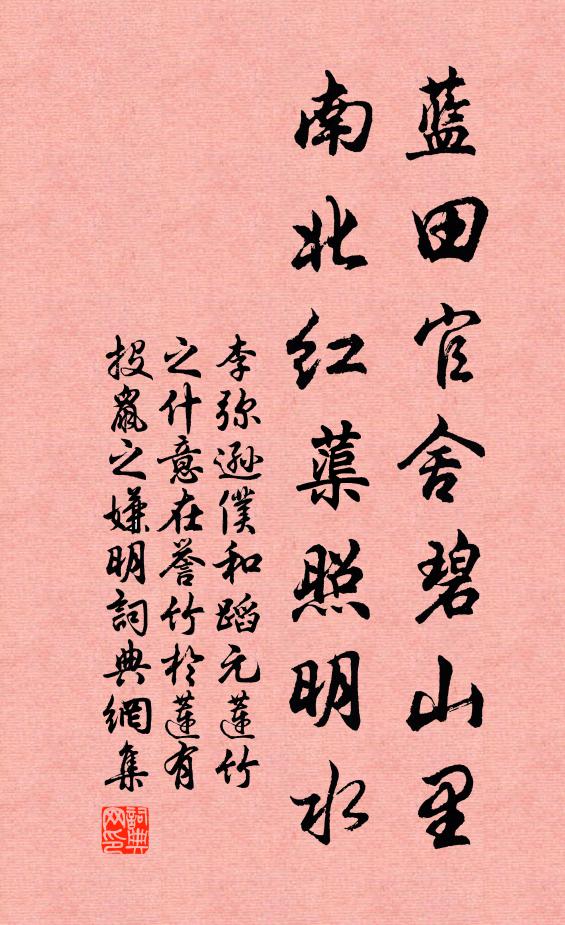 蓝田官舍碧山里
南北红蕖照明水
李弥逊僕和蹈元莲竹
之什意在誉竹於莲有
投鼠之嫌明詞典網集
詞典网印